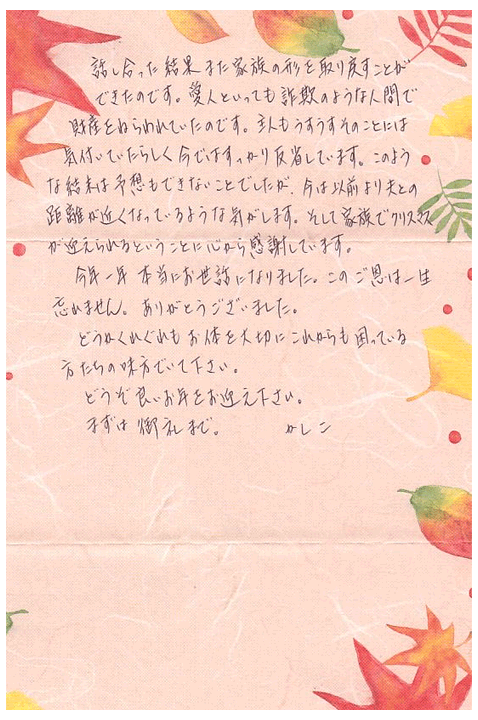 話し合った結果また家族の形を取り戻すことが
できたのです。愛人といっても詐欺のような人間で
財産をねらわれていたのです。主人もうすうすそのことには
気付いていたらしく今ではすっかり反省しています。このよう
な結末は予想もできないことでしたが、今は以前より夫との
距離が近くなっているような気がします。そして家族でクリスマス
が迎えられるということに心から感謝しています。
今年一年 本当にお世話になりました。このご恩は一生
忘れません。ありがとうございました。
どうかくれぐれもお体を大切にこれからも困っている
方たちの味方でいて下さい。
どうぞ良いお年をお迎え下さい。
まずは御礼まで。 かしこ